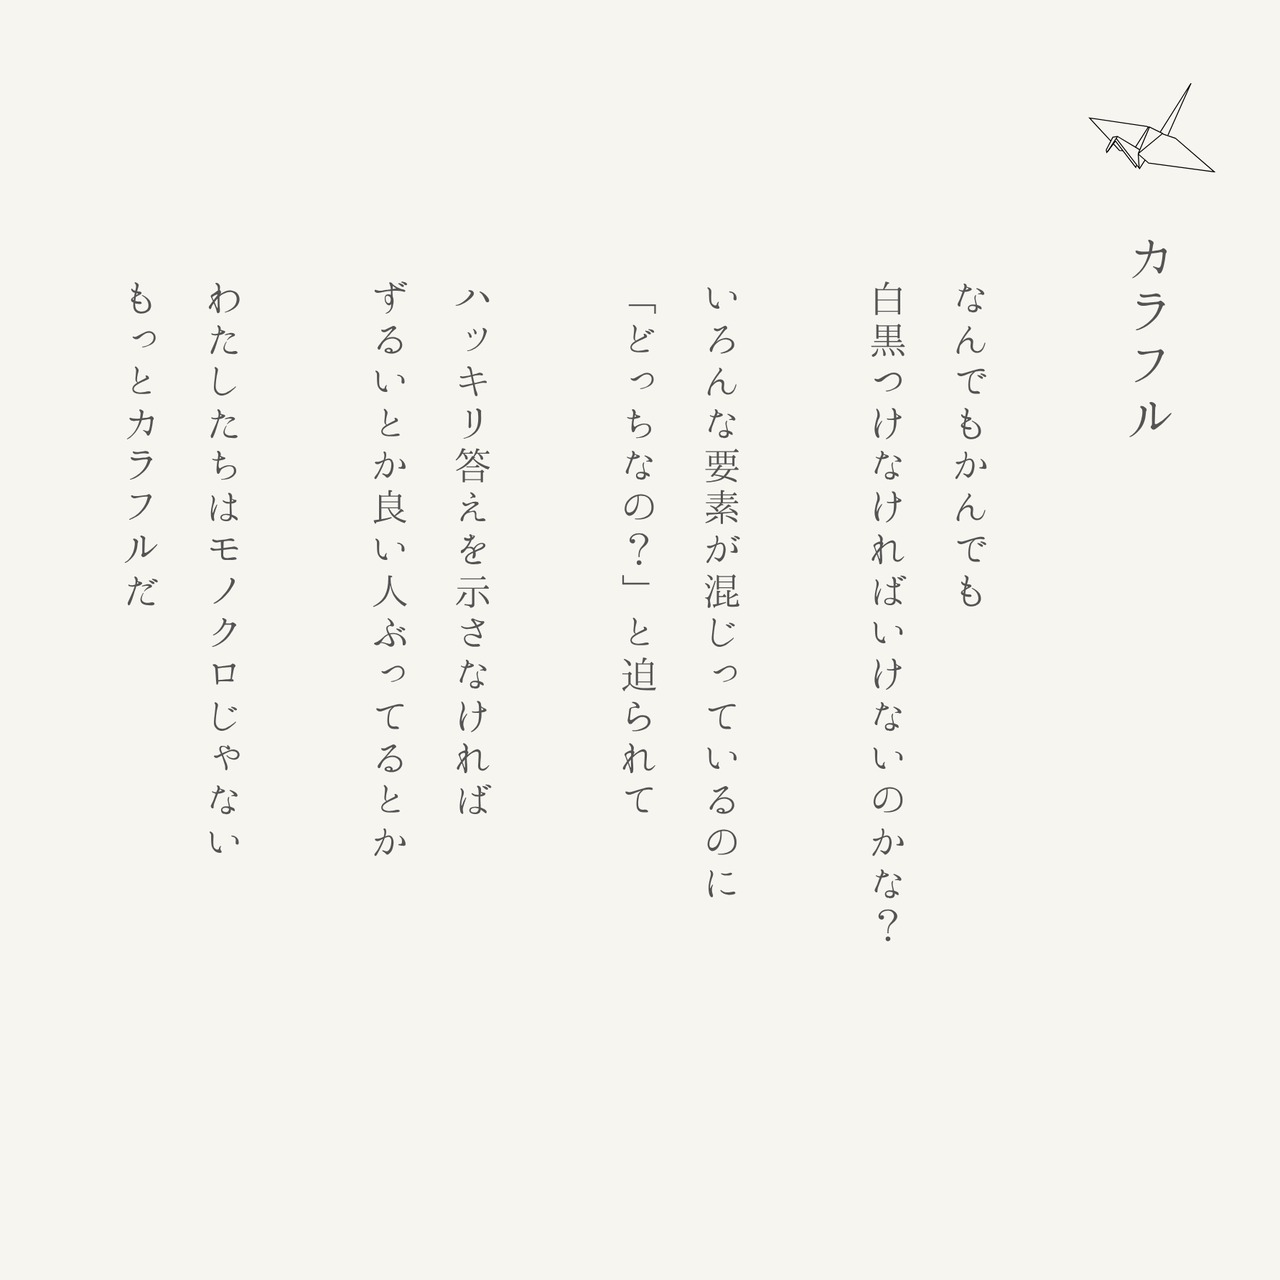 カラフル
なんでもかんでも
白黒つけなければいけないのかな？
いろんな要素が混じっているのに
「どっちなの？」と迫られて
ハッキリ答えを示さなければ
ずるいとか良い人ぶってるとか
わたしたちはモノクロじゃない
もっとカラフルだ